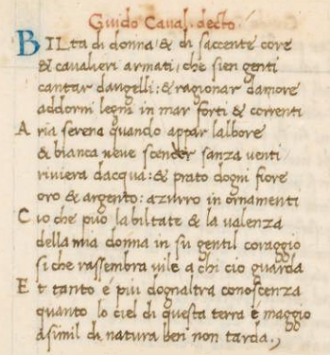 Guido Caval. decto
BILta di donna & di saccente core
& cavalieri armati, che sien genti
cantar daugelli: & ragionar damore
addorni legni in mar forti & correnti
Aria serena quando appar lalbore
& bianca neve scender sanza venti
riviera dacqua: & prato dogni fiore
oro & argento: azurro in ornamenti
Cio che può la biltate & la valenza
della mia donna in su gentil coraggio
si che rassembra vile a chi cio guarda
Et tanto è piu dognaltra conoscenza
quanto lo ciel di questa terra è maggio
asimil di natura ben non tarda.,